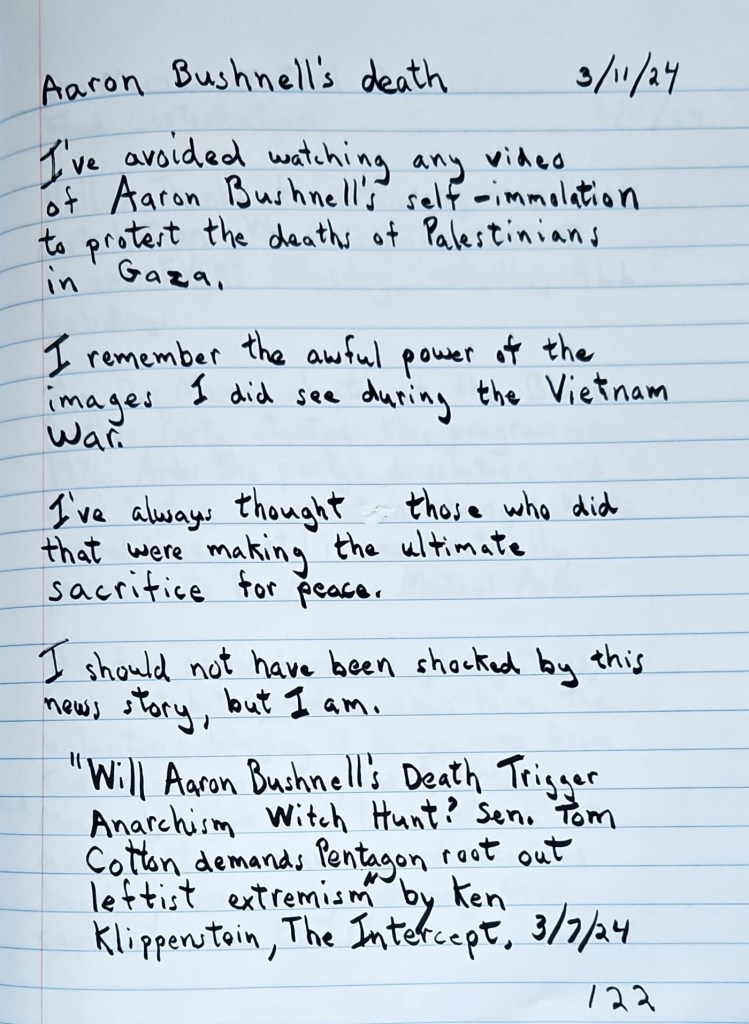 Aaron Bushnell's death 3/11/24
I've avoided watching any video
of Aaron Bushnell's self-immolation
to protest the deaths of Palestinians
in Gaza.
I remember the awful power of the
images I did see during the Vietnam
War.
I've always thought those who did
that were making the ultimate
sacrifice for peace.
I should not have been shocked by this
news story, but I am.
"Will Aaron Bushnell's Death Trigger
Anarchism Witch Hunt? Sen. Tom
Cotton demands Pentagon root out
leftist extremism" by Ken
Klippenstein, The Intercept, 3/7/24
122